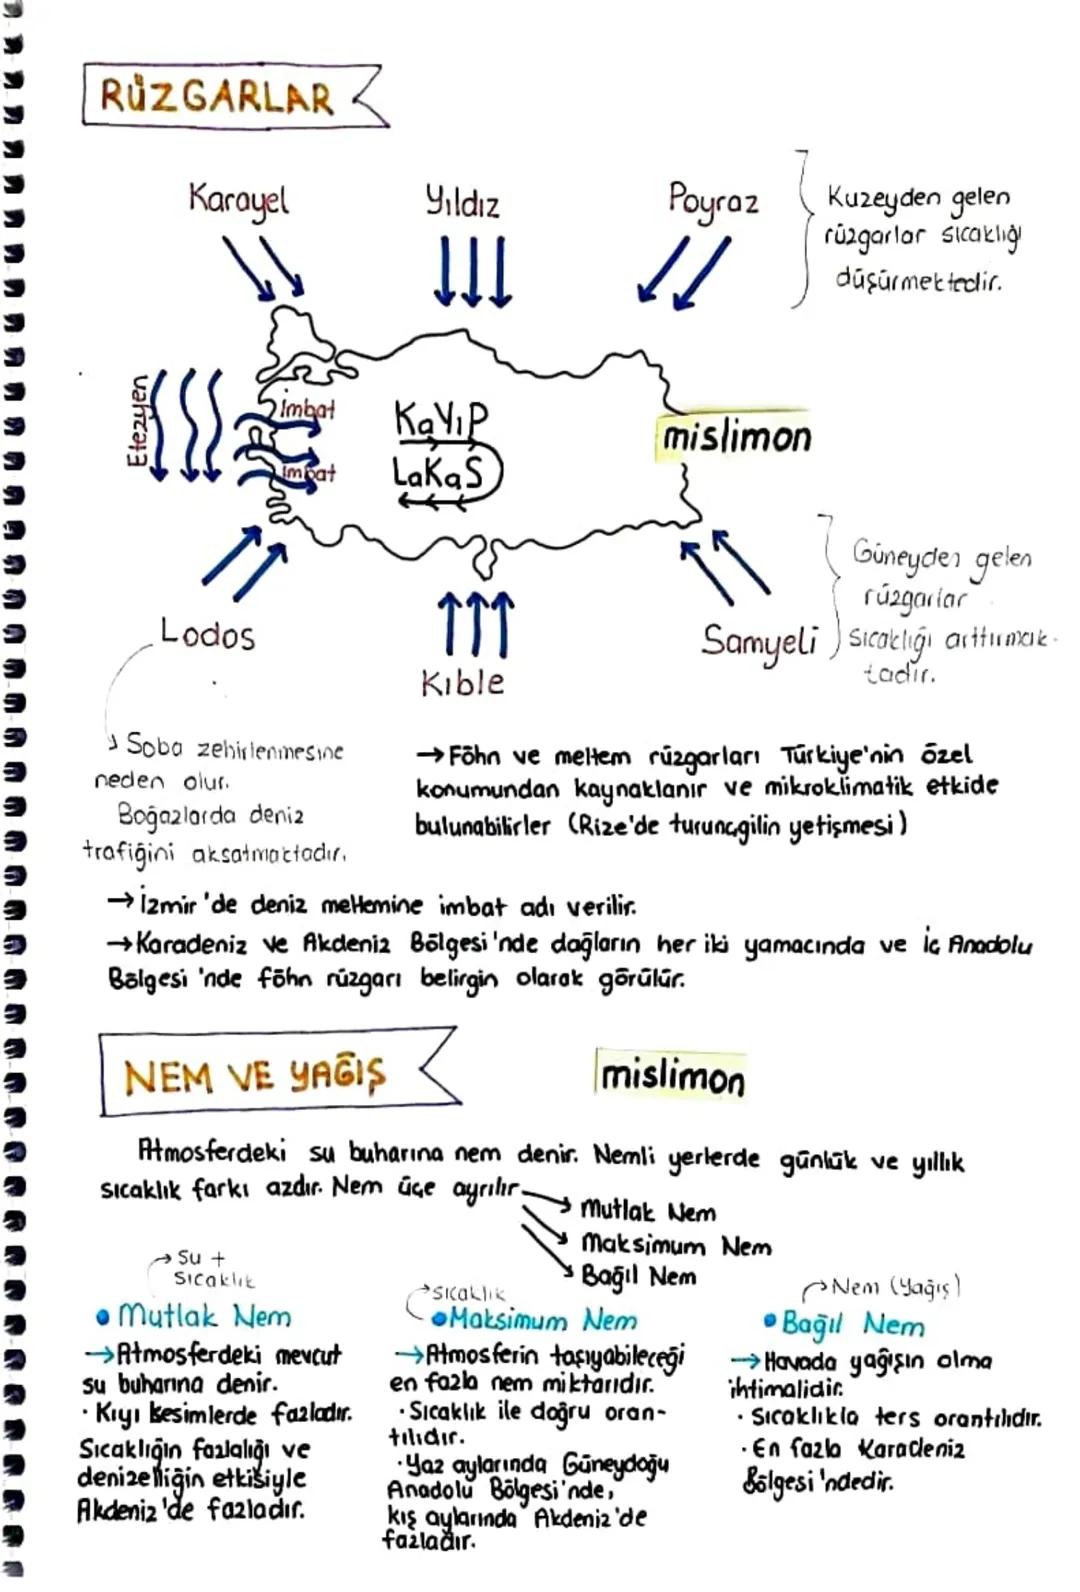 RÜZGARLAR
Karayel
Yıldız
Poyraz
Kuzeyden gelen
rüzgarlar sıcaklığı
düşürmektedir.
Etezyen
İmbat
İmbat
KaYıP
LaKaS
mislimon
Güneyden gelen
rüzgarlar
sıcaklığı arttırmak-
tadır.
Lodos
Kıble
Samyeli
Soba zehirlenmesine
neden olur.
Boğazlarda deniz
trafiğini aksatmaktadır.
→ Föhn ve meltem rüzgarları Türkiye'nin özel
konumundan kaynaklanır ve mikroklimatik etkide
bulunabilirler (Rize'de turunçgilin yetişmesi)
→ İzmir'de deniz meltemine imbat adı verilir.
→ Karadeniz ve Akdeniz Bölgesi'nde dağların her iki yamacında ve İç Anadolu
Bölgesi'nde föhn rüzgarı belirgin olarak görülür.
NEM VE YAĞIŞ
mislimon
Atmosferdeki su buharına nem denir. Nemli yerlerde günlük ve yıllık
sıcaklık farkı azdır. Nem üçe ayrılır.
Mutlak Nem
Maksimum Nem
Bağıl Nem
→ Su +
Sıcaklık
• Mutlak Nem
→ Atmosferdeki mevcut
su buharına denir.
· Kıyı kesimlerde fazladır.
Sıcaklığın fazlalığı ve
denizelliğin etkisiyle
Akdeniz'de fazladır.
→ Sıcaklık
• Maksimum Nem
→ Atmosferin taşıyabileceği
en fazla nem miktarıdır.
· Sıcaklık ile doğru oran-
tılıdır.
· Yaz aylarında Güneydoğu
Anadolu Bölgesi'nde,
kış aylarında Akdeniz'de
fazladır.
→ Nem (Yağış)
• Bağıl Nem
→ Havada yağışın olma
ihtimalidir.
· Sıcaklıkla ters orantılıdır.
· En fazla Karadeniz
Bölgesi'ndedir.